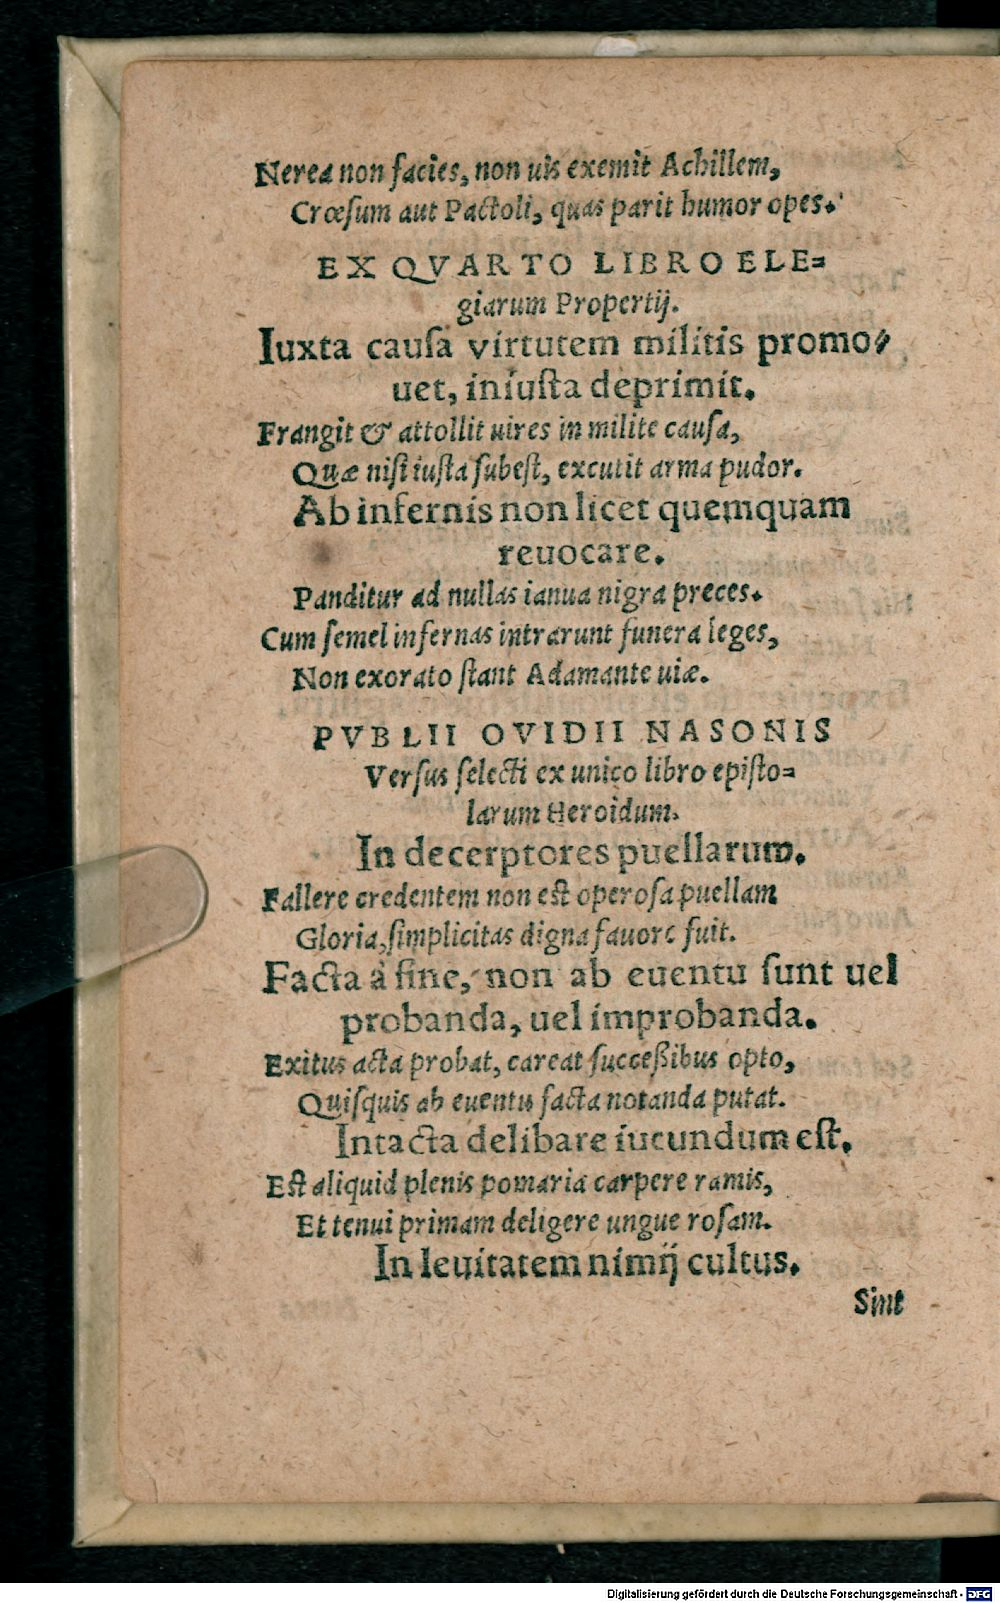 Nerea non facies, non uis exemit Achillem,
Crœſum aut Pactoli, quas parit humor opes.
EX QVARTO LIBRO ELE=
giarum Propertij.
Iuxta cauſa virtutem militis promo-
uet, iniuſta deprimit.
Frangit & attollit uires in milite cauſa,
Quæ niſi iuſta ſubeſt, excutit arma pudor.
Ab infernis non licet quemquam
reuocare.
Panditur ad nullas ianua nigra preces.
Cum ſemel infernas intrarunt funera leges,
Non exorato ſtant Adamante uiæ.
PVBLII OVIDII NASONIS
Verſus ſelecti ex unico libro epiſto=
larum Heroidum.
In decerptores puellarum.
Fallere credentem non eſt operoſa puellam
Gloria, ſimplicitas digna fauore fuit.
Facta à fine, non ab euentu ſunt uel
probanda, uel improbanda.
Exitus acta probat, careat ſucceßibus opto,
Quiſquis ab euentu facta notanda putat.
Intacta delibare iucundum eſt.
Eſt aliquid plenis pomaria carpere ramis,
Et tenui primam deligere ungue roſam.
In leuitatem nimij cultus.
Sint
Digitalisierung gefördert durch die Deutsche Forschungsgemeinschaft - DFG